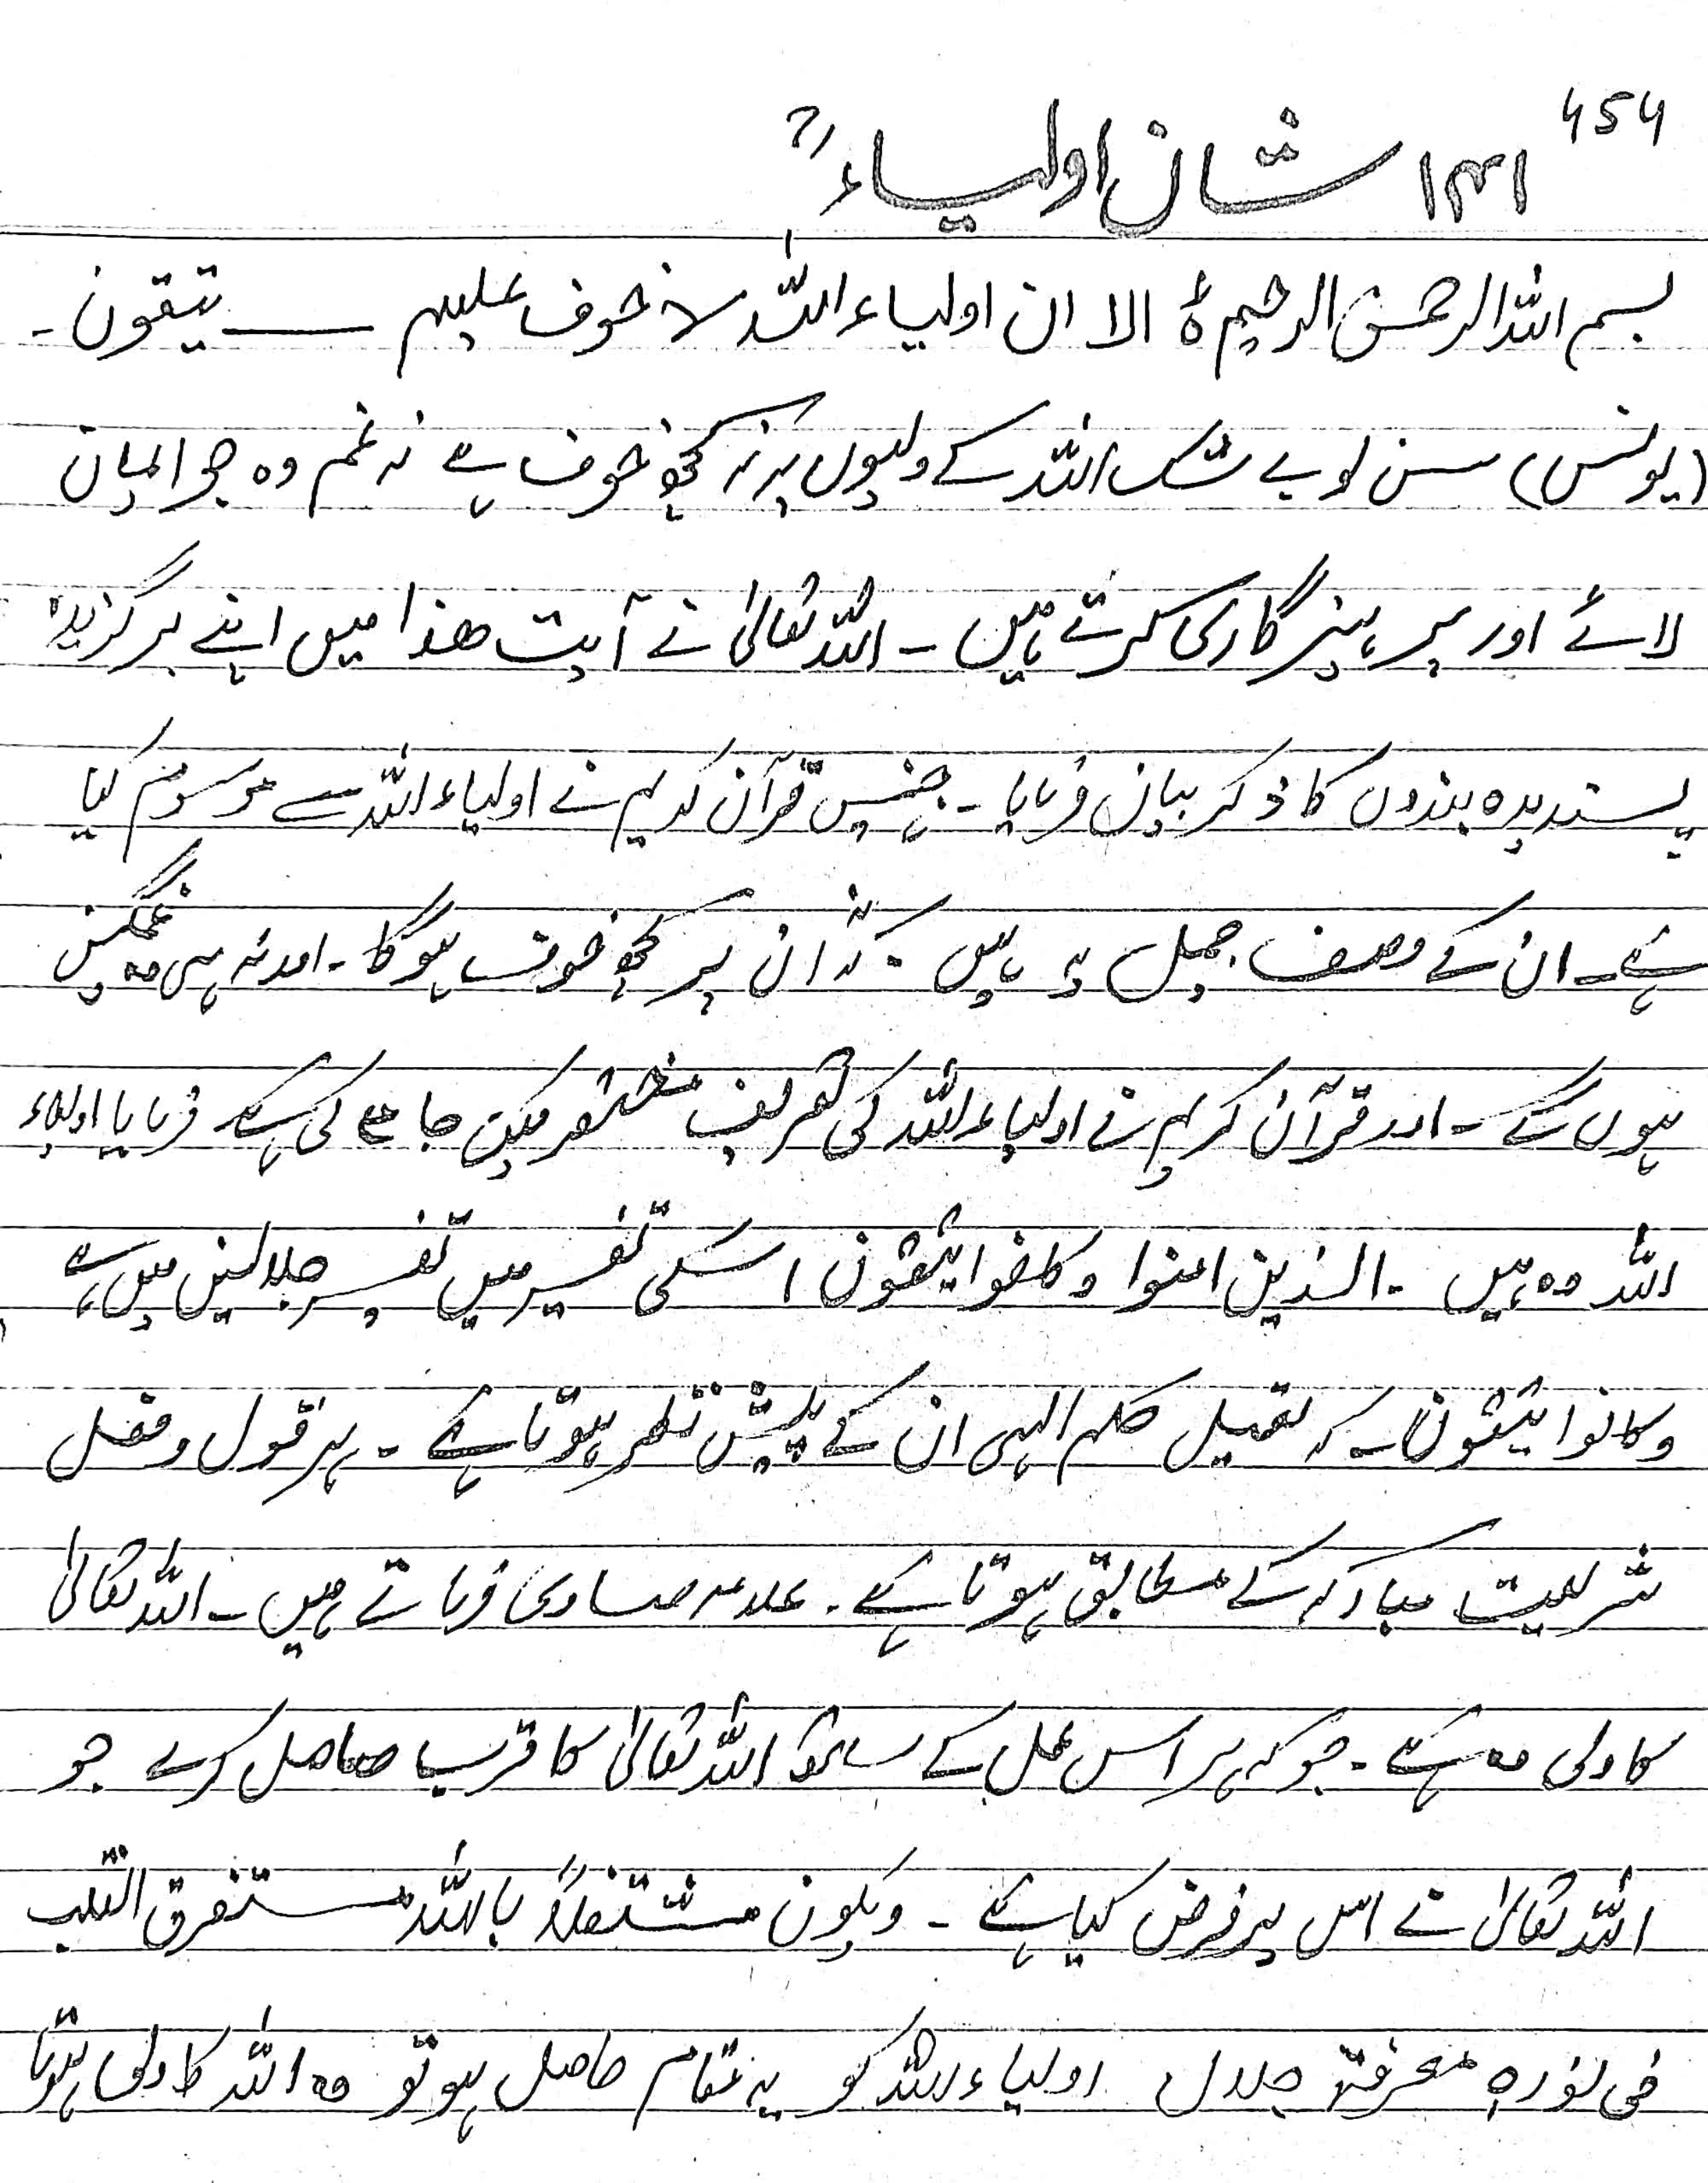 454
۱۴۱ شان اولیاءؒ
بسم اللہ الرحمٰن الرحیم ہ الا ان اولیاء اللہ لا خوف علیہم ــــــ یتقون ۔
(یونس) سن لو بے شک اللہ کے ولیوں پر نہ کچھ خوف ہے نہ غم وہ جو ایمان
لائے اور پرہیزگاری کرتے ہیں ۔ اللہ تعالیٰ نے آیت ھذا میں اپنے برگزیدہ
پسندیدہ بندوں کا ذکر بیان فرمایا ۔ جنہیں قرآن کریم نے اولیاء اللہ سے موسوم کیا
ہے ۔ ان کے وصف جمیل یہ ہیں ۔ کہ نہ ان پر کچھ خوف ہوگا ۔ اور نہ ہی وہ غمگین
ہوں گے ۔ اور قرآن کریم نے اولیاء اللہ کی تعریف مختصر لیکن جامع کی ہے فرمایا اولیاء
اللہ وہ ہیں ۔ الذین امنوا وکانوا یتقون اسکی تفسیر میں تفسیر جلالین میں ہے
وکانوا یتقون ۔ کہ تعمیل حکم الہی ان کے پیش نظر ہوتا ہے ۔ ہر قول و فعل
شریعت مبارکہ کے مطابق ہوتا ہے ۔ علامہ صاوی فرماتے ہیں ۔ اللہ تعالیٰ
کا ولی وہ ہے ۔ جو کہ ہر اس عمل کے ساتھ اللہ تعالیٰ کا قرب حاصل کرے جو
اللہ تعالیٰ نے اس پر فرض کیا ہے ۔ ویکون مشتغلاً باللہ مستغرق القلب
فی نورہ معرفۃ جلال اولیاء اللہ کو یہ مقام حاصل ہو تو وہ اللہ کا ولی ہوتا